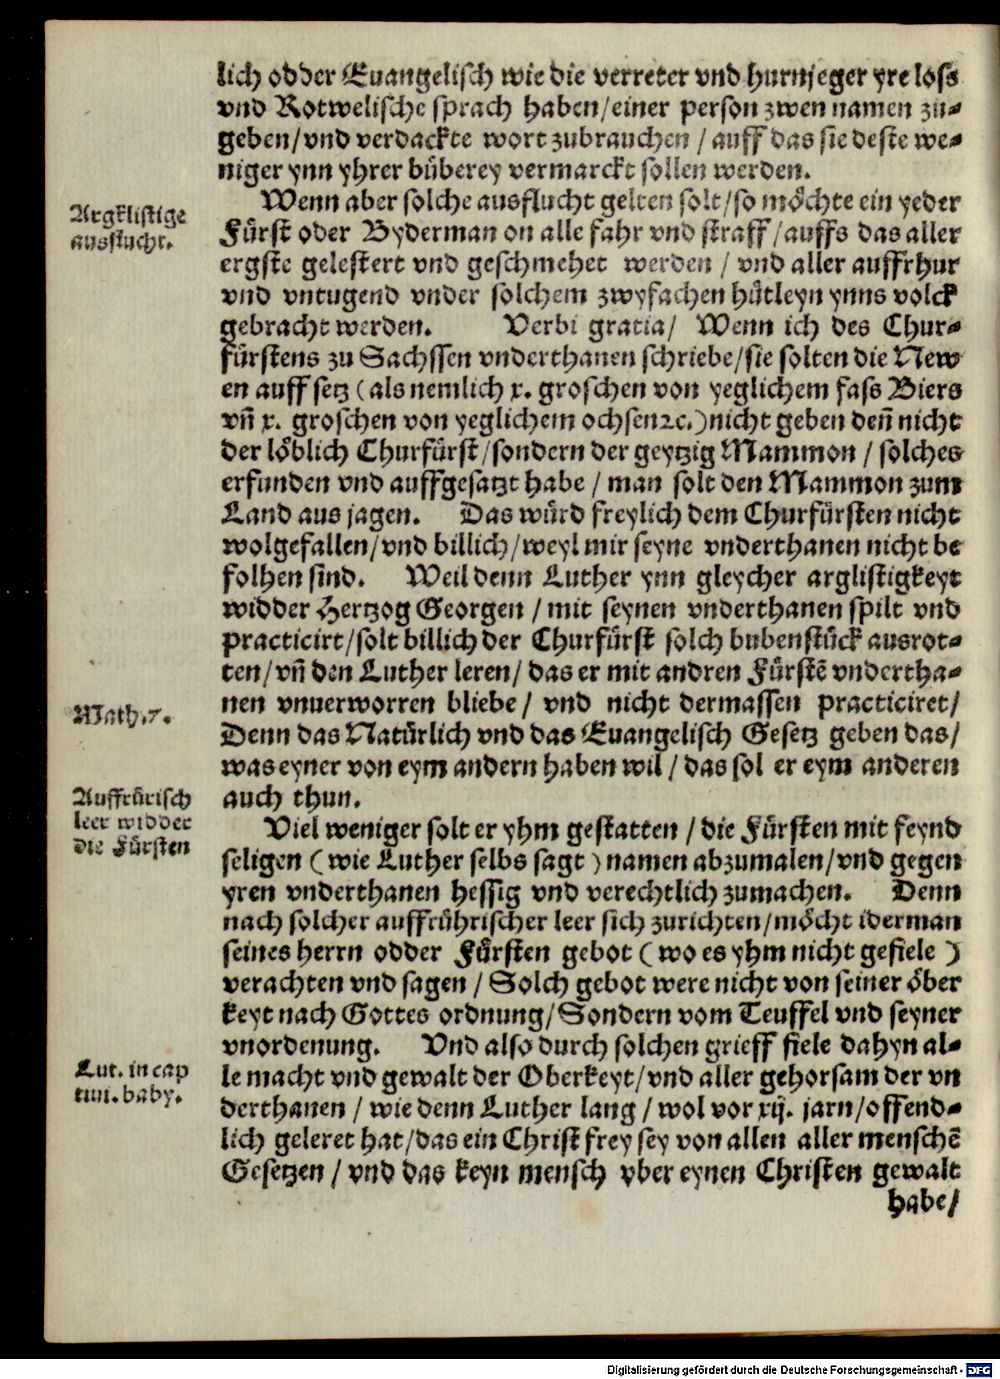 lich odder Euangelisch wie die verreter vnd hurnjeger yre loss
vnd Rotwelische sprach haben/einer person zwen namen zu-
geben/vnd verdackte wort zubrauchen / auff das sie deste we-
niger ynn yhrer büberey vermarckt sollen werden.
Argklistige
ausflucht.
Wenn aber solche ausflucht gelten solt/so möchte ein yeder
Fürst oder Byderman on alle fahr vnd straff/auffs das aller
ergste gelestert vnd geschmehet werden / vnd aller auffrhur
vnd vntugend vnder solchem zwyfachen hütleyn ynns volck
gebracht werden. Verbi gratia/ Wenn ich des Chur-
fürstens zu Sachssen vnderthanen schriebe/sie solten die New
en auff setz (als nemlich x. groschen von yeglichem fass Biers
vñ x. groschen von yeglichem ochsen ꝛc.) nicht geben deñ nicht
der löblich Churfürst/sondern der geytzig Mammon / solches
erfunden vnd auffgesatzt habe / man solt den Mammon zum
Land aus jagen. Das würd freylich dem Churfürsten nicht
wolgefallen/vnd billich/weyl mir seyne vnderthanen nicht be
folhen sind. Weil denn Luther ynn gleycher arglistigkeyt
widder Hertzog Georgen / mit seynen vnderthanen spilt vnd
practicirt/solt billich der Churfürst solch bubenstück ausrot-
ten/vñ den Luther leren/ das er mit andren Fürstẽ vndertha-
nen vnuerworren bliebe/ vnd nicht dermassen practiciret/
Math.7.
Denn das Natürlich vnd das Euangelisch Gesetz geben das/
was eyner von eym andern haben wil / das sol er eym anderen
auch thun.
Auffrürisch
leer widder
die Fürsten
Viel weniger solt er yhm gestatten / die Fürsten mit feynd
seligen (wie Luther selbs sagt) namen abzumalen/vnd gegen
yren vnderthanen hessig vnd verechtlich zumachen. Denn
nach solcher auffrührischer leer sich zurichten/möcht iderman
seines herrn odder Fürsten gebot (wo es yhm nicht gefiele)
verachten vnd sagen / Solch gebot were nicht von seiner öber
keyt nach Gottes ordnung/Sondern vom Teuffel vnd seyner
vnordenung. Vnd also durch solchen grieff fiele dahyn al-
Lut. in cap
tiui. baby.
le macht vnd gewalt der Oberkeyt/vnd aller gehorsam der vn
derthanen / wie denn Luther lang / wol vor xij. jarn/offend-
lich geleret hat/das ein Christ frey sey von allen aller menschẽ
Gesetzen / vnd das keyn mensch vber eynen Christen gewalt
habe/
Digitalisierung gefördert durch die Deutsche Forschungsgemeinschaft - DFG